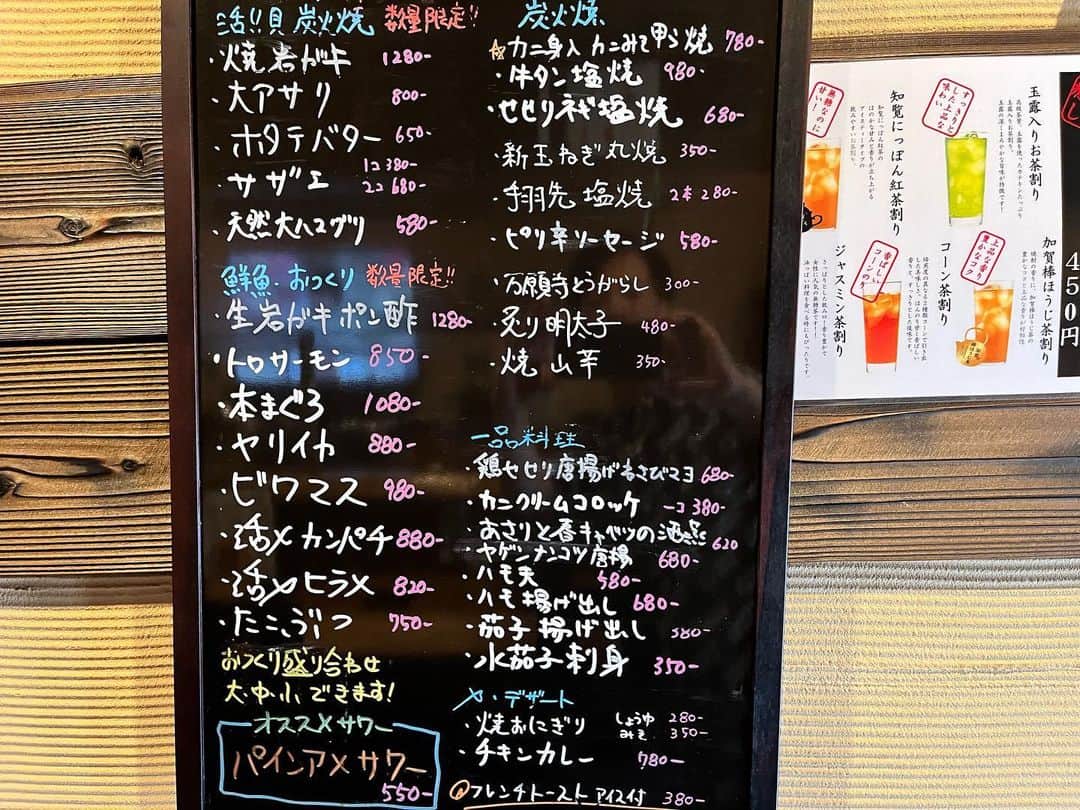 活!!貝 炭火焼 数量限定!!
・焼岩ガキ 1280-
・大アサリ 800-
・ホタテバター 650-
・サザエ 1コ 380-
2コ 680-
・天然大ハマグリ 580-
鮮魚・おつくり 数量限定!!
・生岩ガキポン酢 1280-
・トロサーモン 850-
・本まぐろ 1080-
・ヤリイカ 880-
・ビワマス 980-
・活〆カンパチ 880-
・活〆ヒラメ 820-
・たこぶつ 750-
おつくり盛り合わせ
大・中・小できます!
オススメサワー
パインアメサワー
550-
炭火焼
☆カニ身入カニみそ甲ら焼 780-
・牛タン塩焼 980-
・せせりネギ塩焼 680-
・新玉ねぎ丸焼 350-
・手羽先塩焼 2本 280-
・ピリ辛ソーセージ 580-
・万願寺とうがらし 300-
・炙り明太子 480-
・焼山芋 350-
一品料理
・鶏セセリ唐揚げわさびマヨ 680-
・カニクリームコロッケ 一コ 380-
・あさりと春キャベツの酒蒸し 620
・ヤゲンナンコツ唐揚 680-
・ハモ天 580-
・ハモ揚げ出し 680-
・茄子揚げ出し 580-
・水茄子刺身 350-
〆・デザート
・焼おにぎり しょうゆ 280-
みそ 350-
・チキンカレー 780-
フレンチトースト アイス付 380-
玉露入りお茶割り
すっきりとした上品な味わい
知覧にっぽん紅茶割り
無糖なのに甘い!
加賀棒ほうじ茶割り
上品な香り豊かなコク
コーン茶割り
香ばしいコーンのコク
ジャスミン茶割り
450円